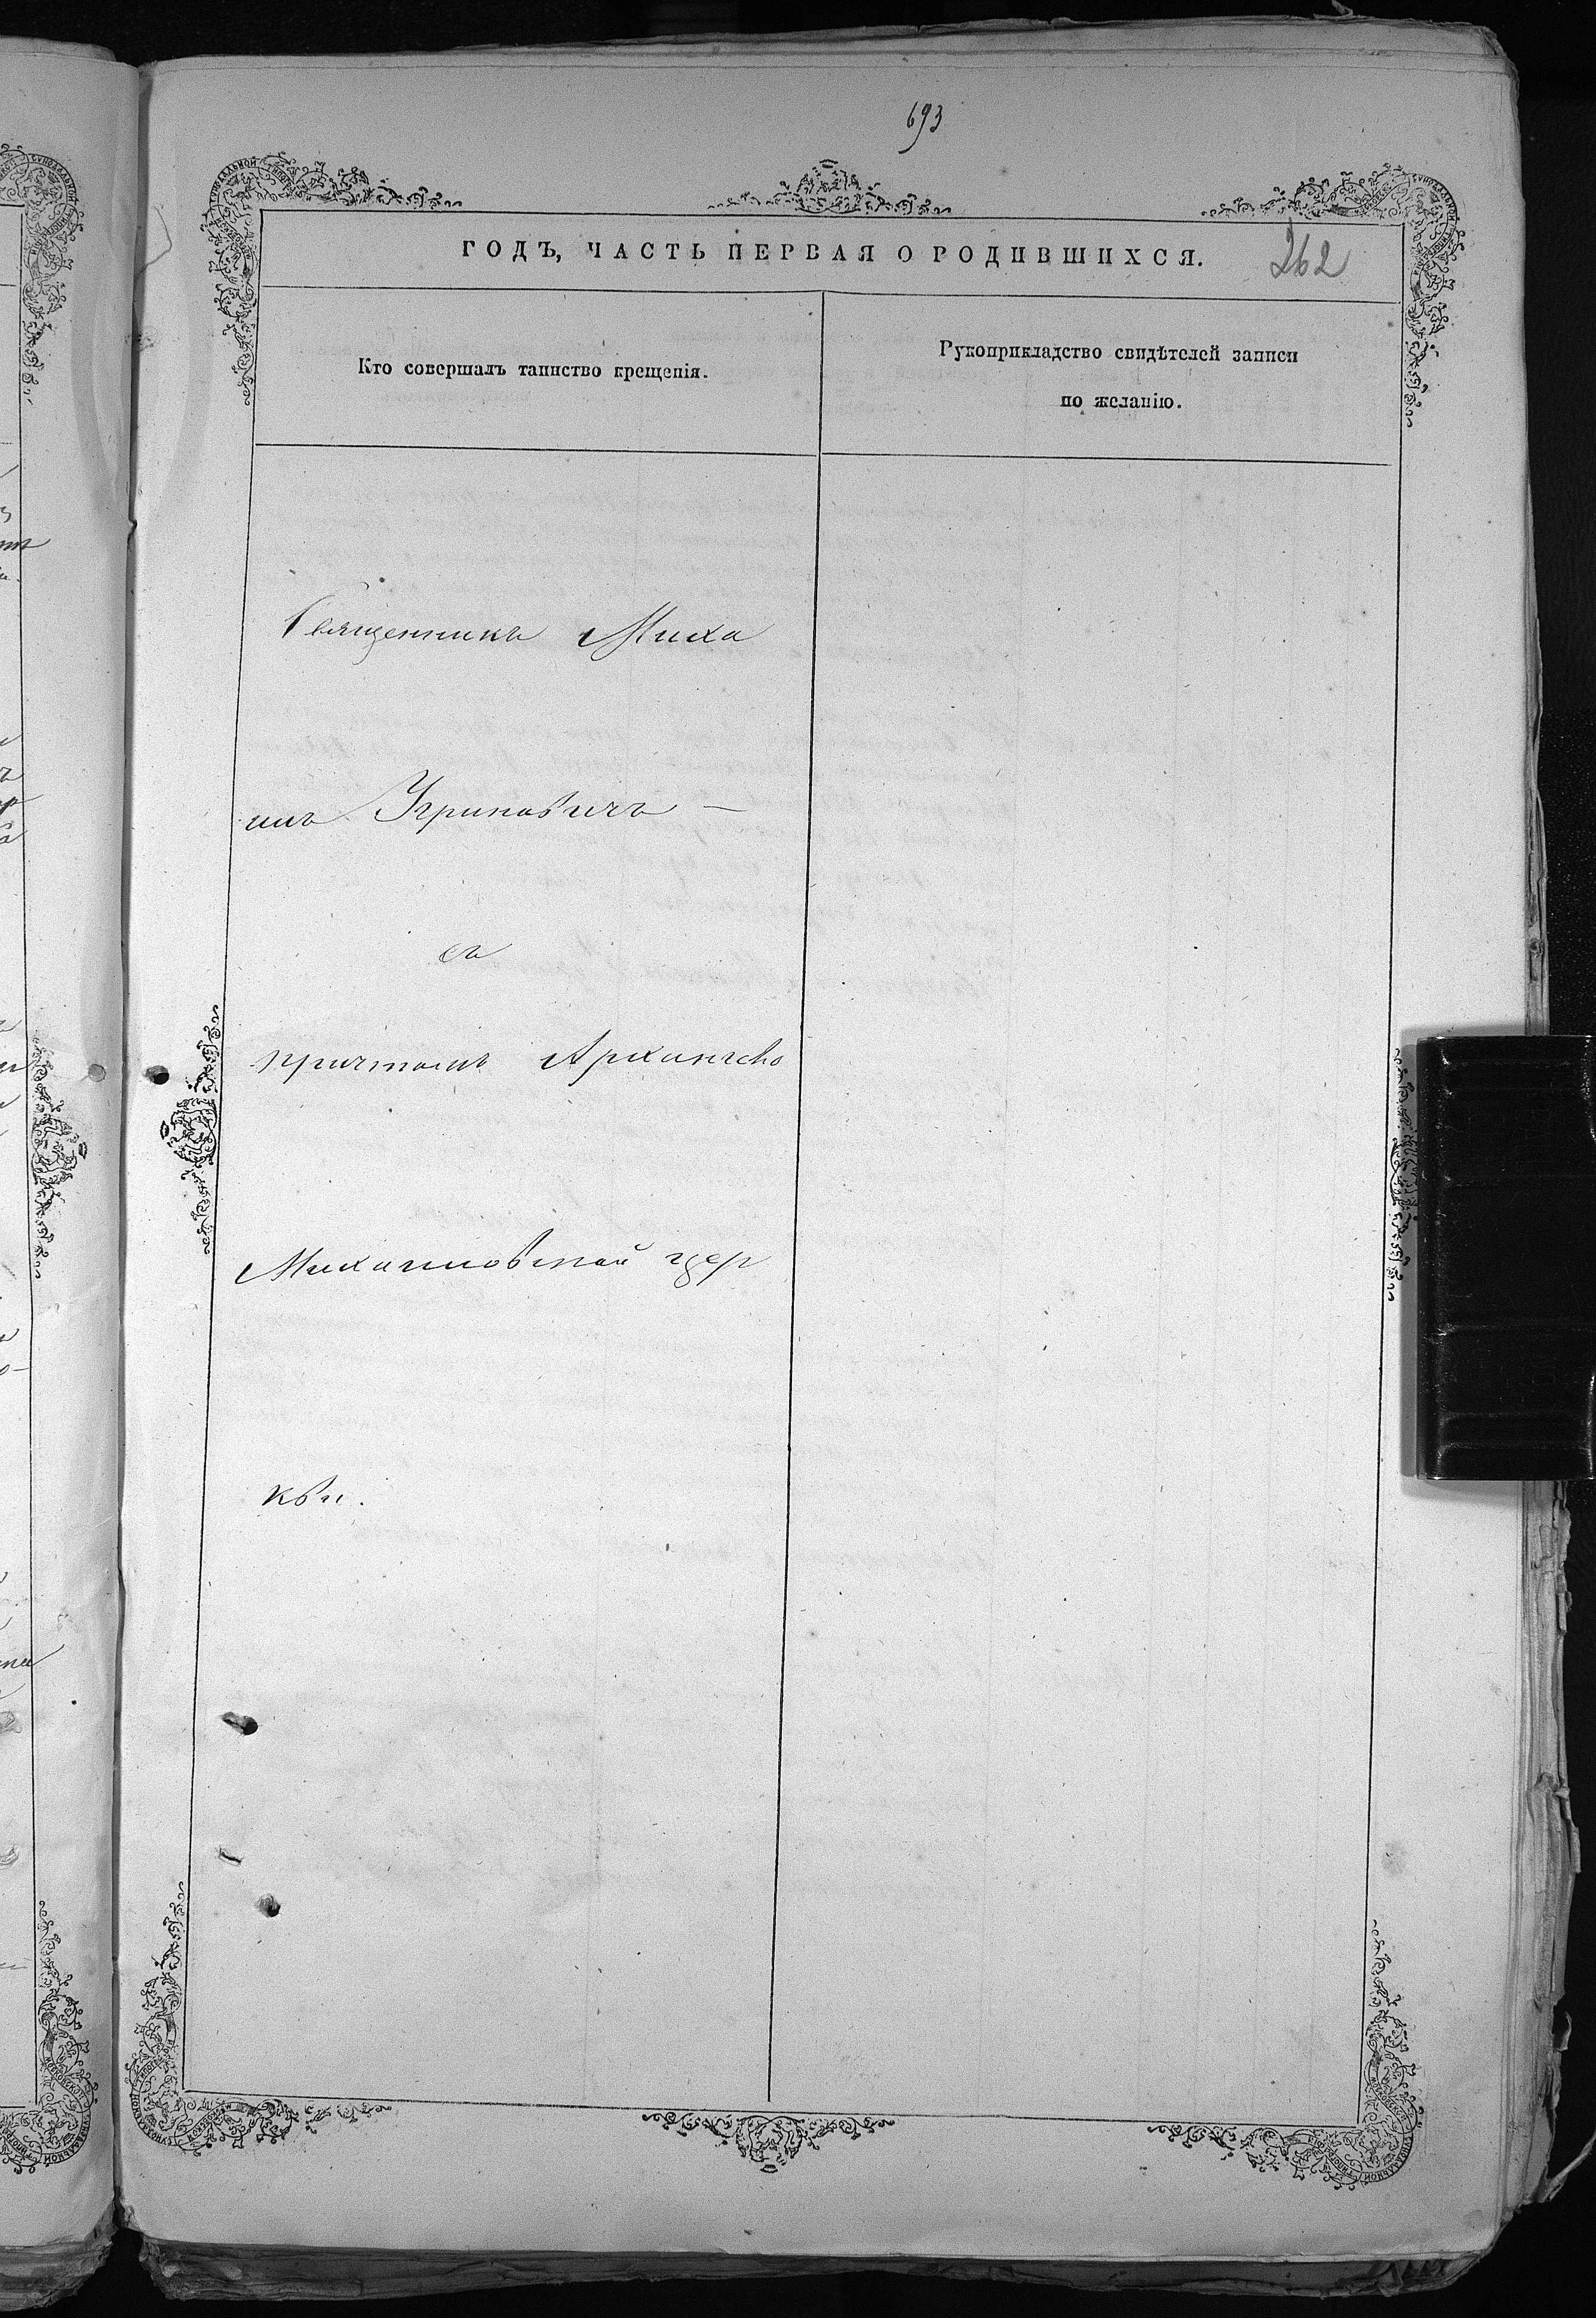 693
ГОДЪ, ЧАСТЬ ПЕРВАЯ О РОДИВШИХСЯ.
262
Кто совершалъ таинство крещенія.
Рукоприкладство свидѣтелей записи
по желанію.
Священникъ Миха
илъ Угриновичъ —
съ
причтомъ Архангело
Михаиловской цер
кви.